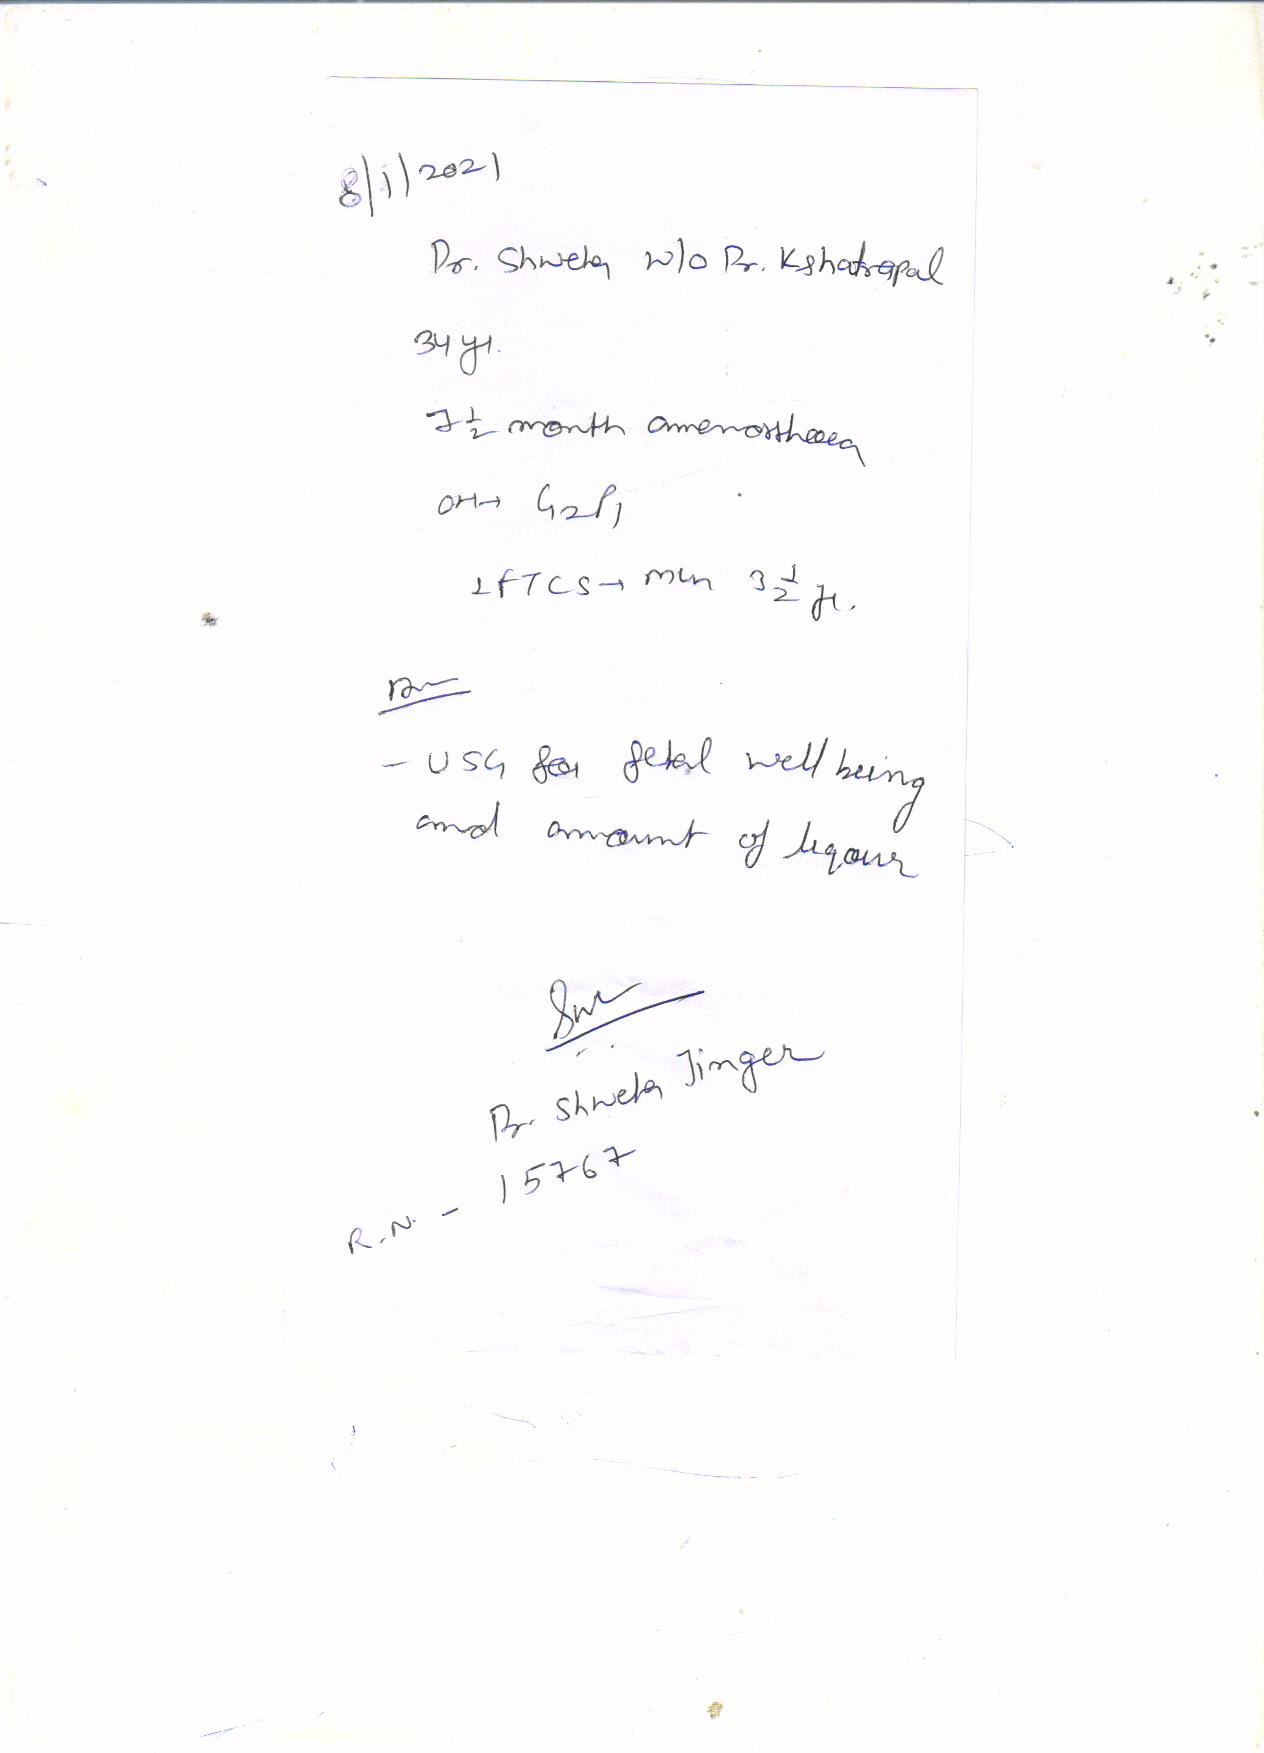 8/1/2021
Dr. Shweta w/o Dr. Kshatrapal
34 yr.
7 1/2 month amenorrhoea
OH→ G2P1
1 FTCS → mch 3 1/2 yr.
Adv
- USG for fetal well being
and amount of liqour
Dr. Shweta Jinger
R.N. - 15767